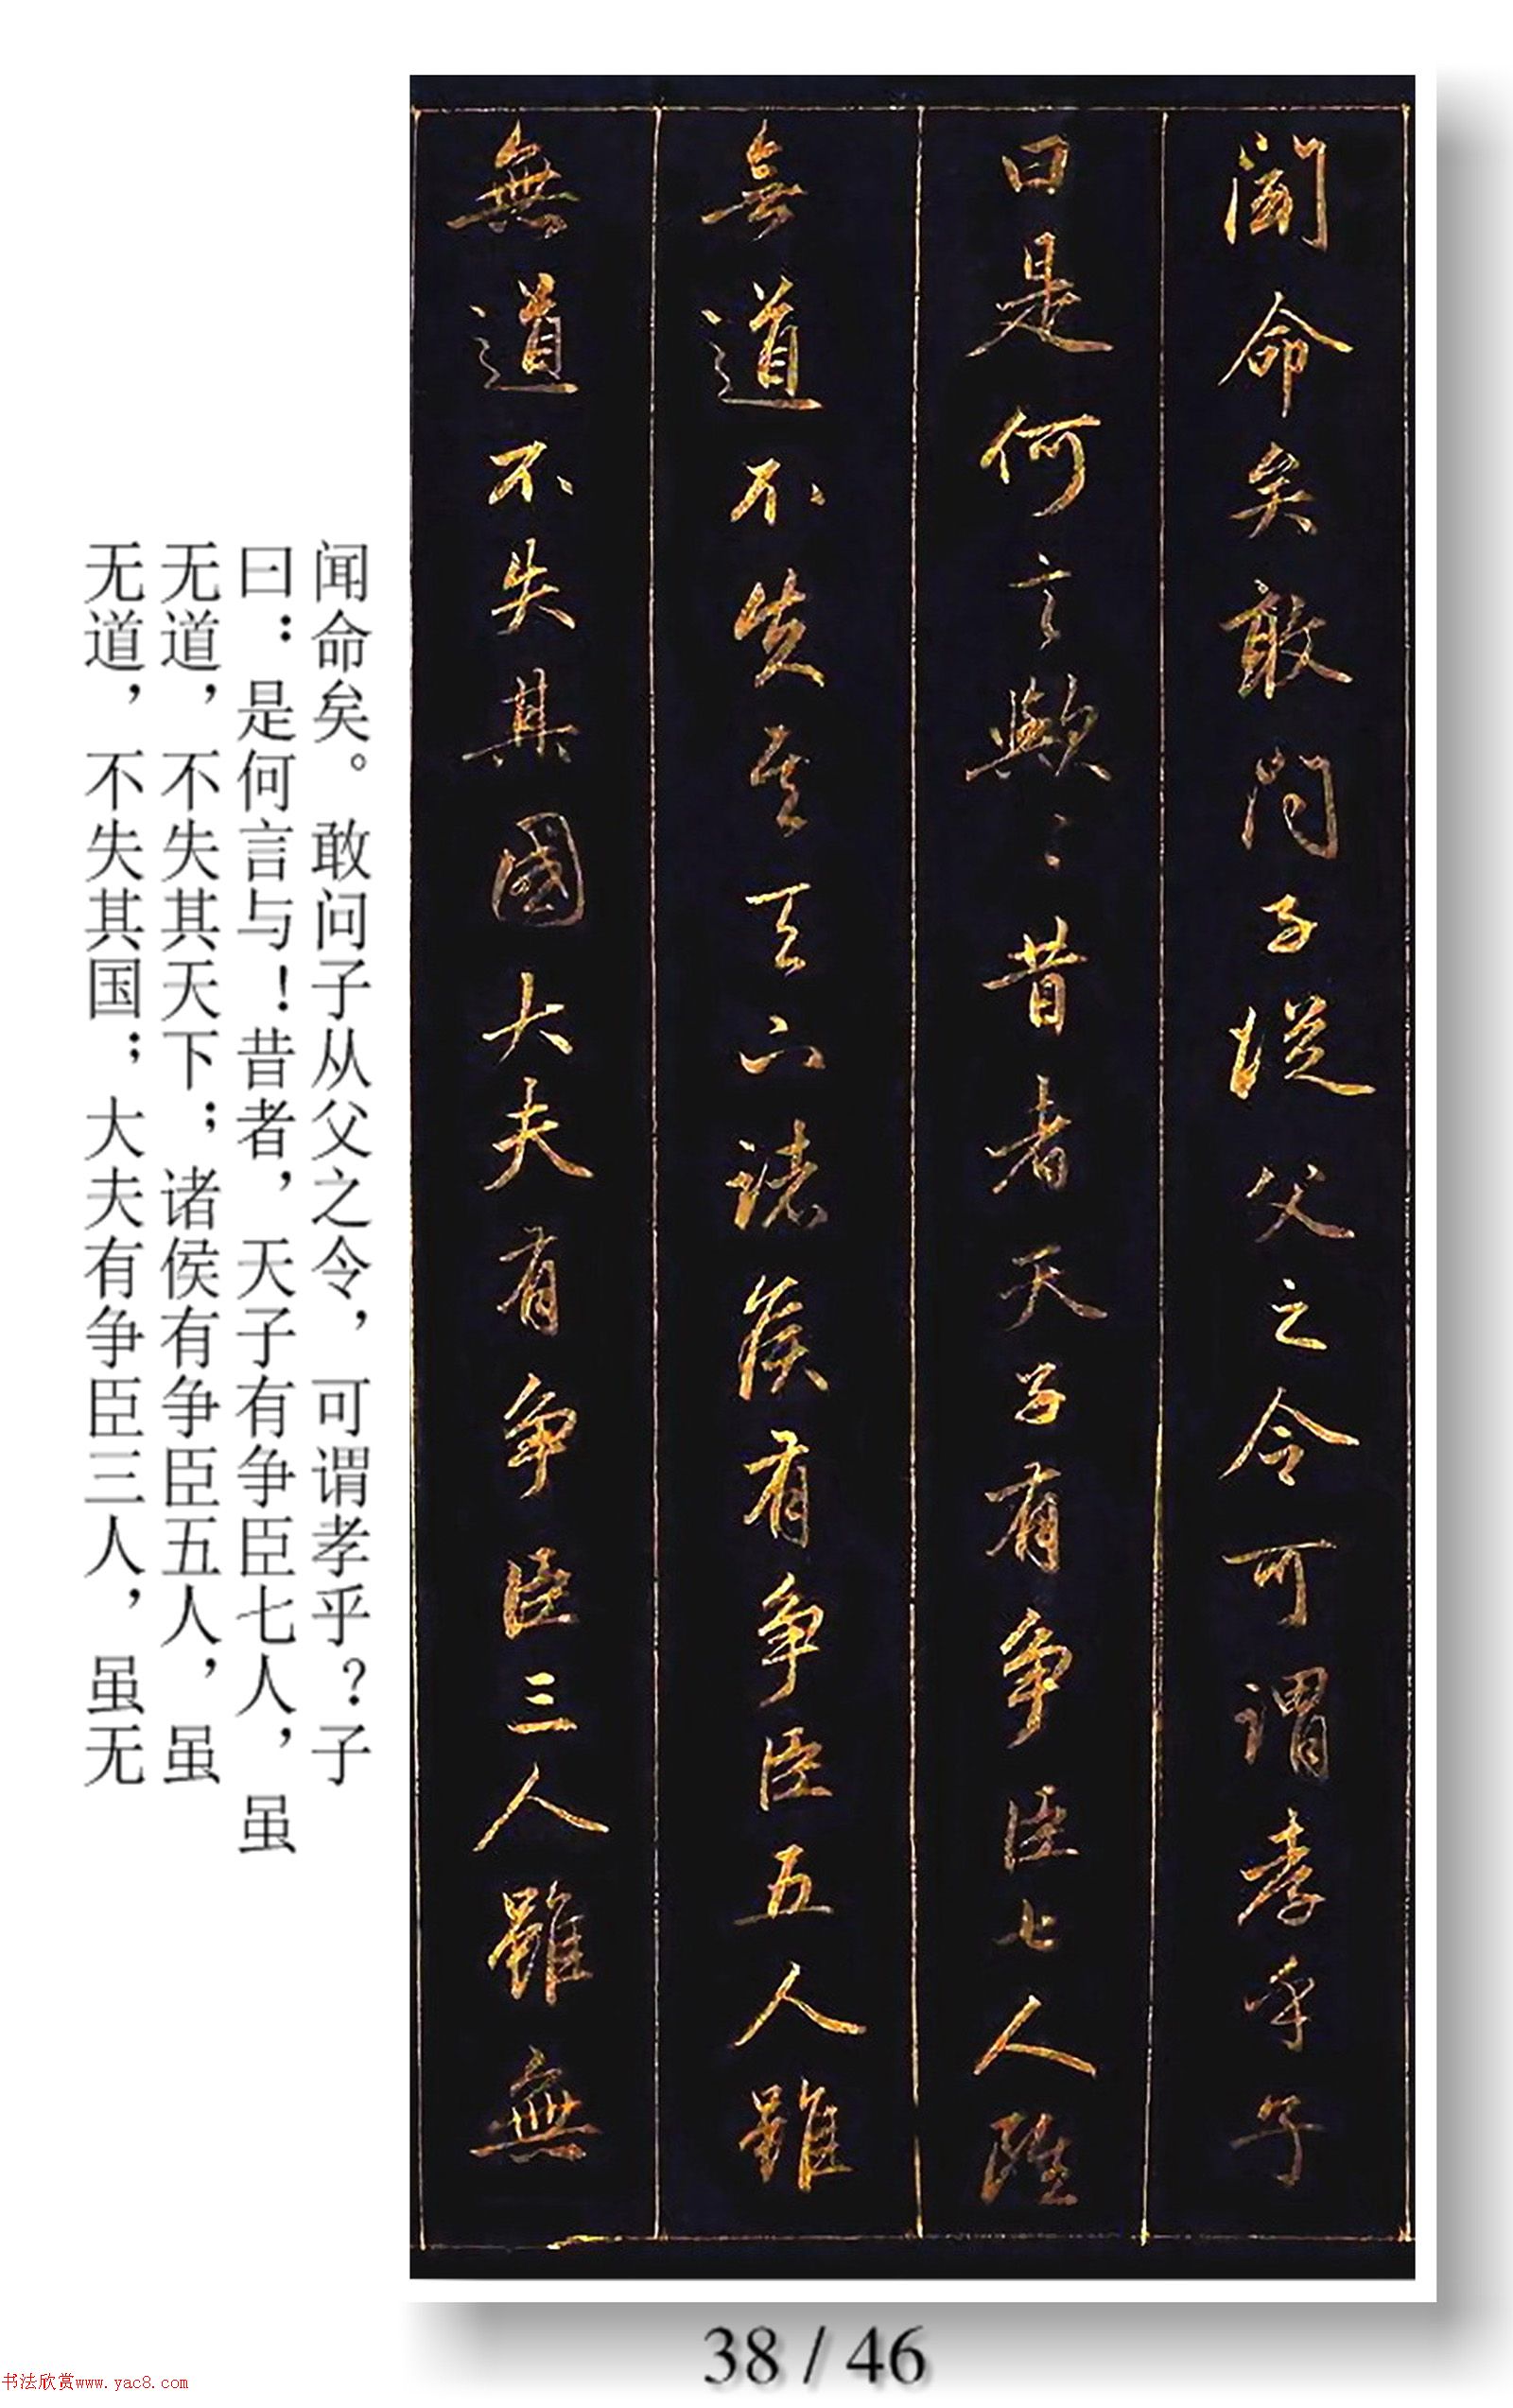 聞命矣敢問子從父之令可謂孝乎子
曰是何言歟〻昔者天子有争臣七人雖
無道不失其天下諸侯有争臣五人雖
無道不失其國大夫有争臣三人雖無
闻命矣。敢问子从父之令，可谓孝乎？子
曰：是何言与！昔者，天子有争臣七人，虽
无道，不失其天下；诸侯有争臣五人，虽
无道，不失其国；大夫有争臣三人，虽无
38 / 46
书法欣赏www.yac8.com